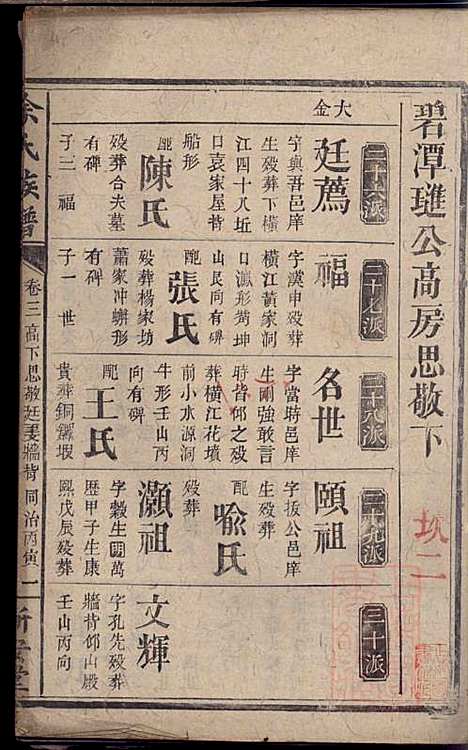 碧潭璡公高房思敬下
二十六派
大金
廷薦
字輿吾邑庠
生殁葬下橫
江四十八坵
日袁家屋背
船形
配
陳氏
殁葬合夫墓
有碑
子二 福
二十七派
福
字漢申殁葬
橫江黃家洞
口瀛形巽坤
山艮向有碑
配
張氏
殁葬楊家坊
蕭家冲蠏形
有碑
子一 世
二十八派
名世
字當時邑庠
生剛強敢言
時皆仰之殁
葬橫江花墳
前小水源洞
牛形壬山丙
向有碑
配
王氏
貴葬銅鑼塅
二十九派
頤祖
字拔公邑庠
生殁葬
配
喻氏
殁葬
灝祖
字毅生圃萬
歷甲子生康
熙戊辰殁葬
三十派
文輝
字孔先殁葬
牆背仰山嚴
壬山丙向
余氏族譜
卷三 高下思敬廷 牆背 同治丙寅
二
新安堂
玖二